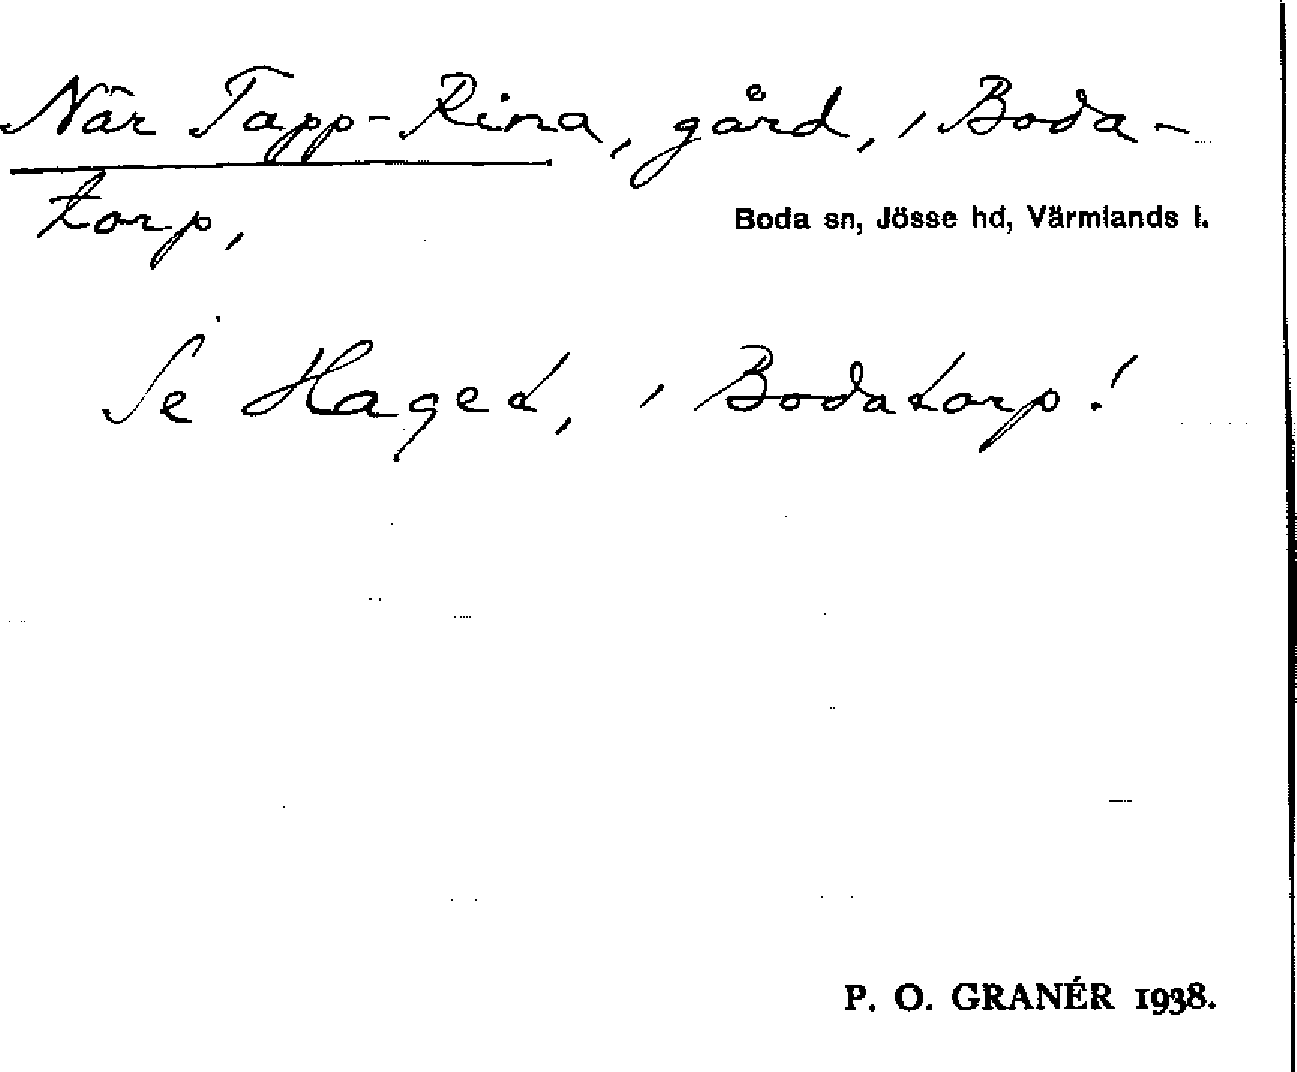 När Tapp-Rina, gård, i Boda-
torp,
Boda sn, Jösse hd, Värmlands l.
Se Haget, i Bodatorp!
P. O. GRANÉR 1938.